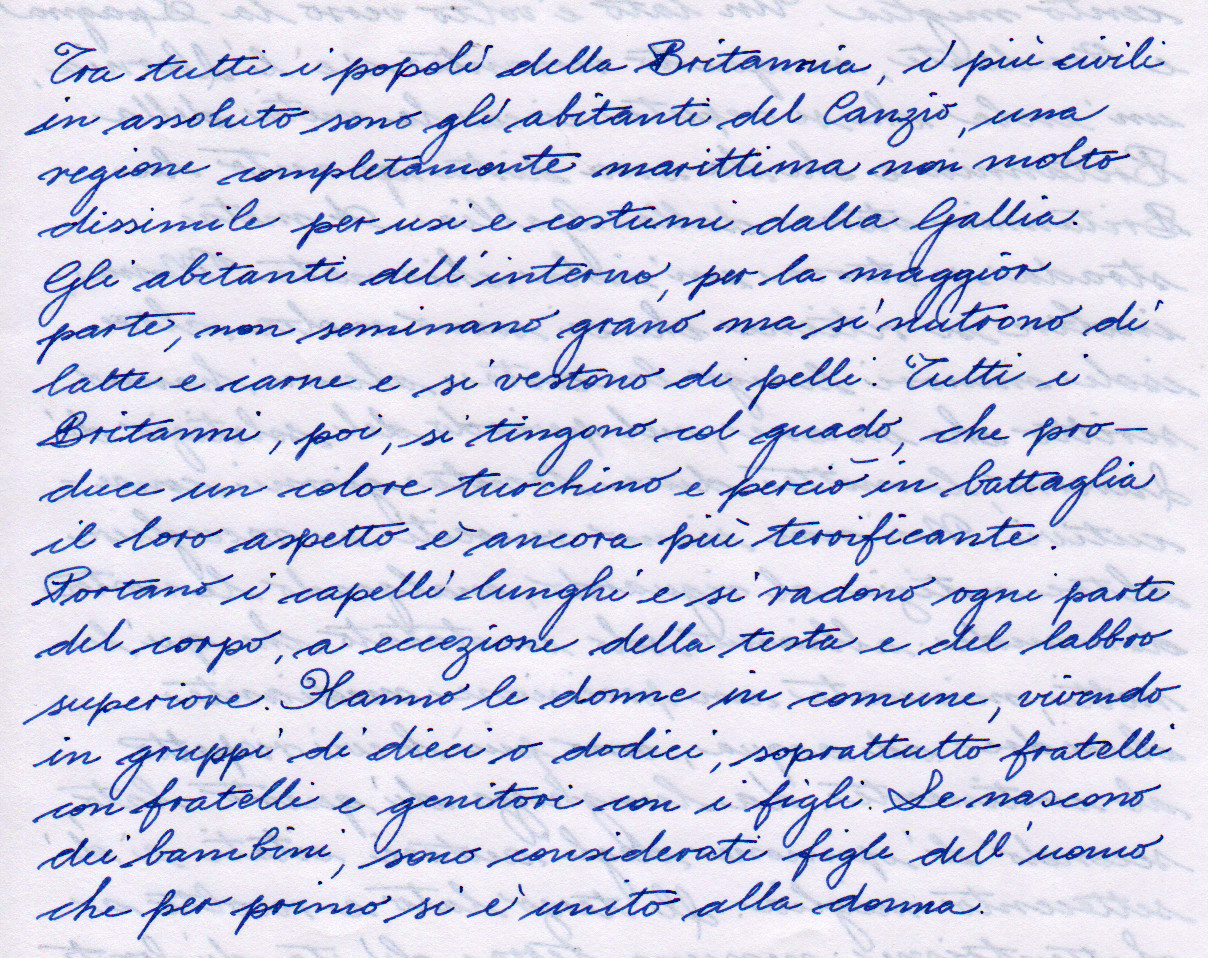 Tra tutti i popoli della Britannia, i più civili
in assoluto sono gli abitanti del Canzio, una
regione completamente marittima non molto
dissimile per usi e costumi dalla Gallia.
Gli abitanti dell'interno, per la maggior
parte, non seminano grano ma si nutrono di
latte e carne e si vestono di pelli. Tutti i
Britanni, poi, si tingono col guado, che pro-
duce un colore turchino e perciò in battaglia
il loro aspetto è ancora più terrificante.
Portano i capelli lunghi e si radono ogni parte
del corpo, a eccezione della testa e del labbro
superiore. Hanno le donne in comune, vivendo
in gruppi di dieci o dodici, soprattutto fratelli
con fratelli e genitori con i figli. Se nascono
dei bambini, sono considerati figli dell'uomo
che per primo si è unito alla donna.